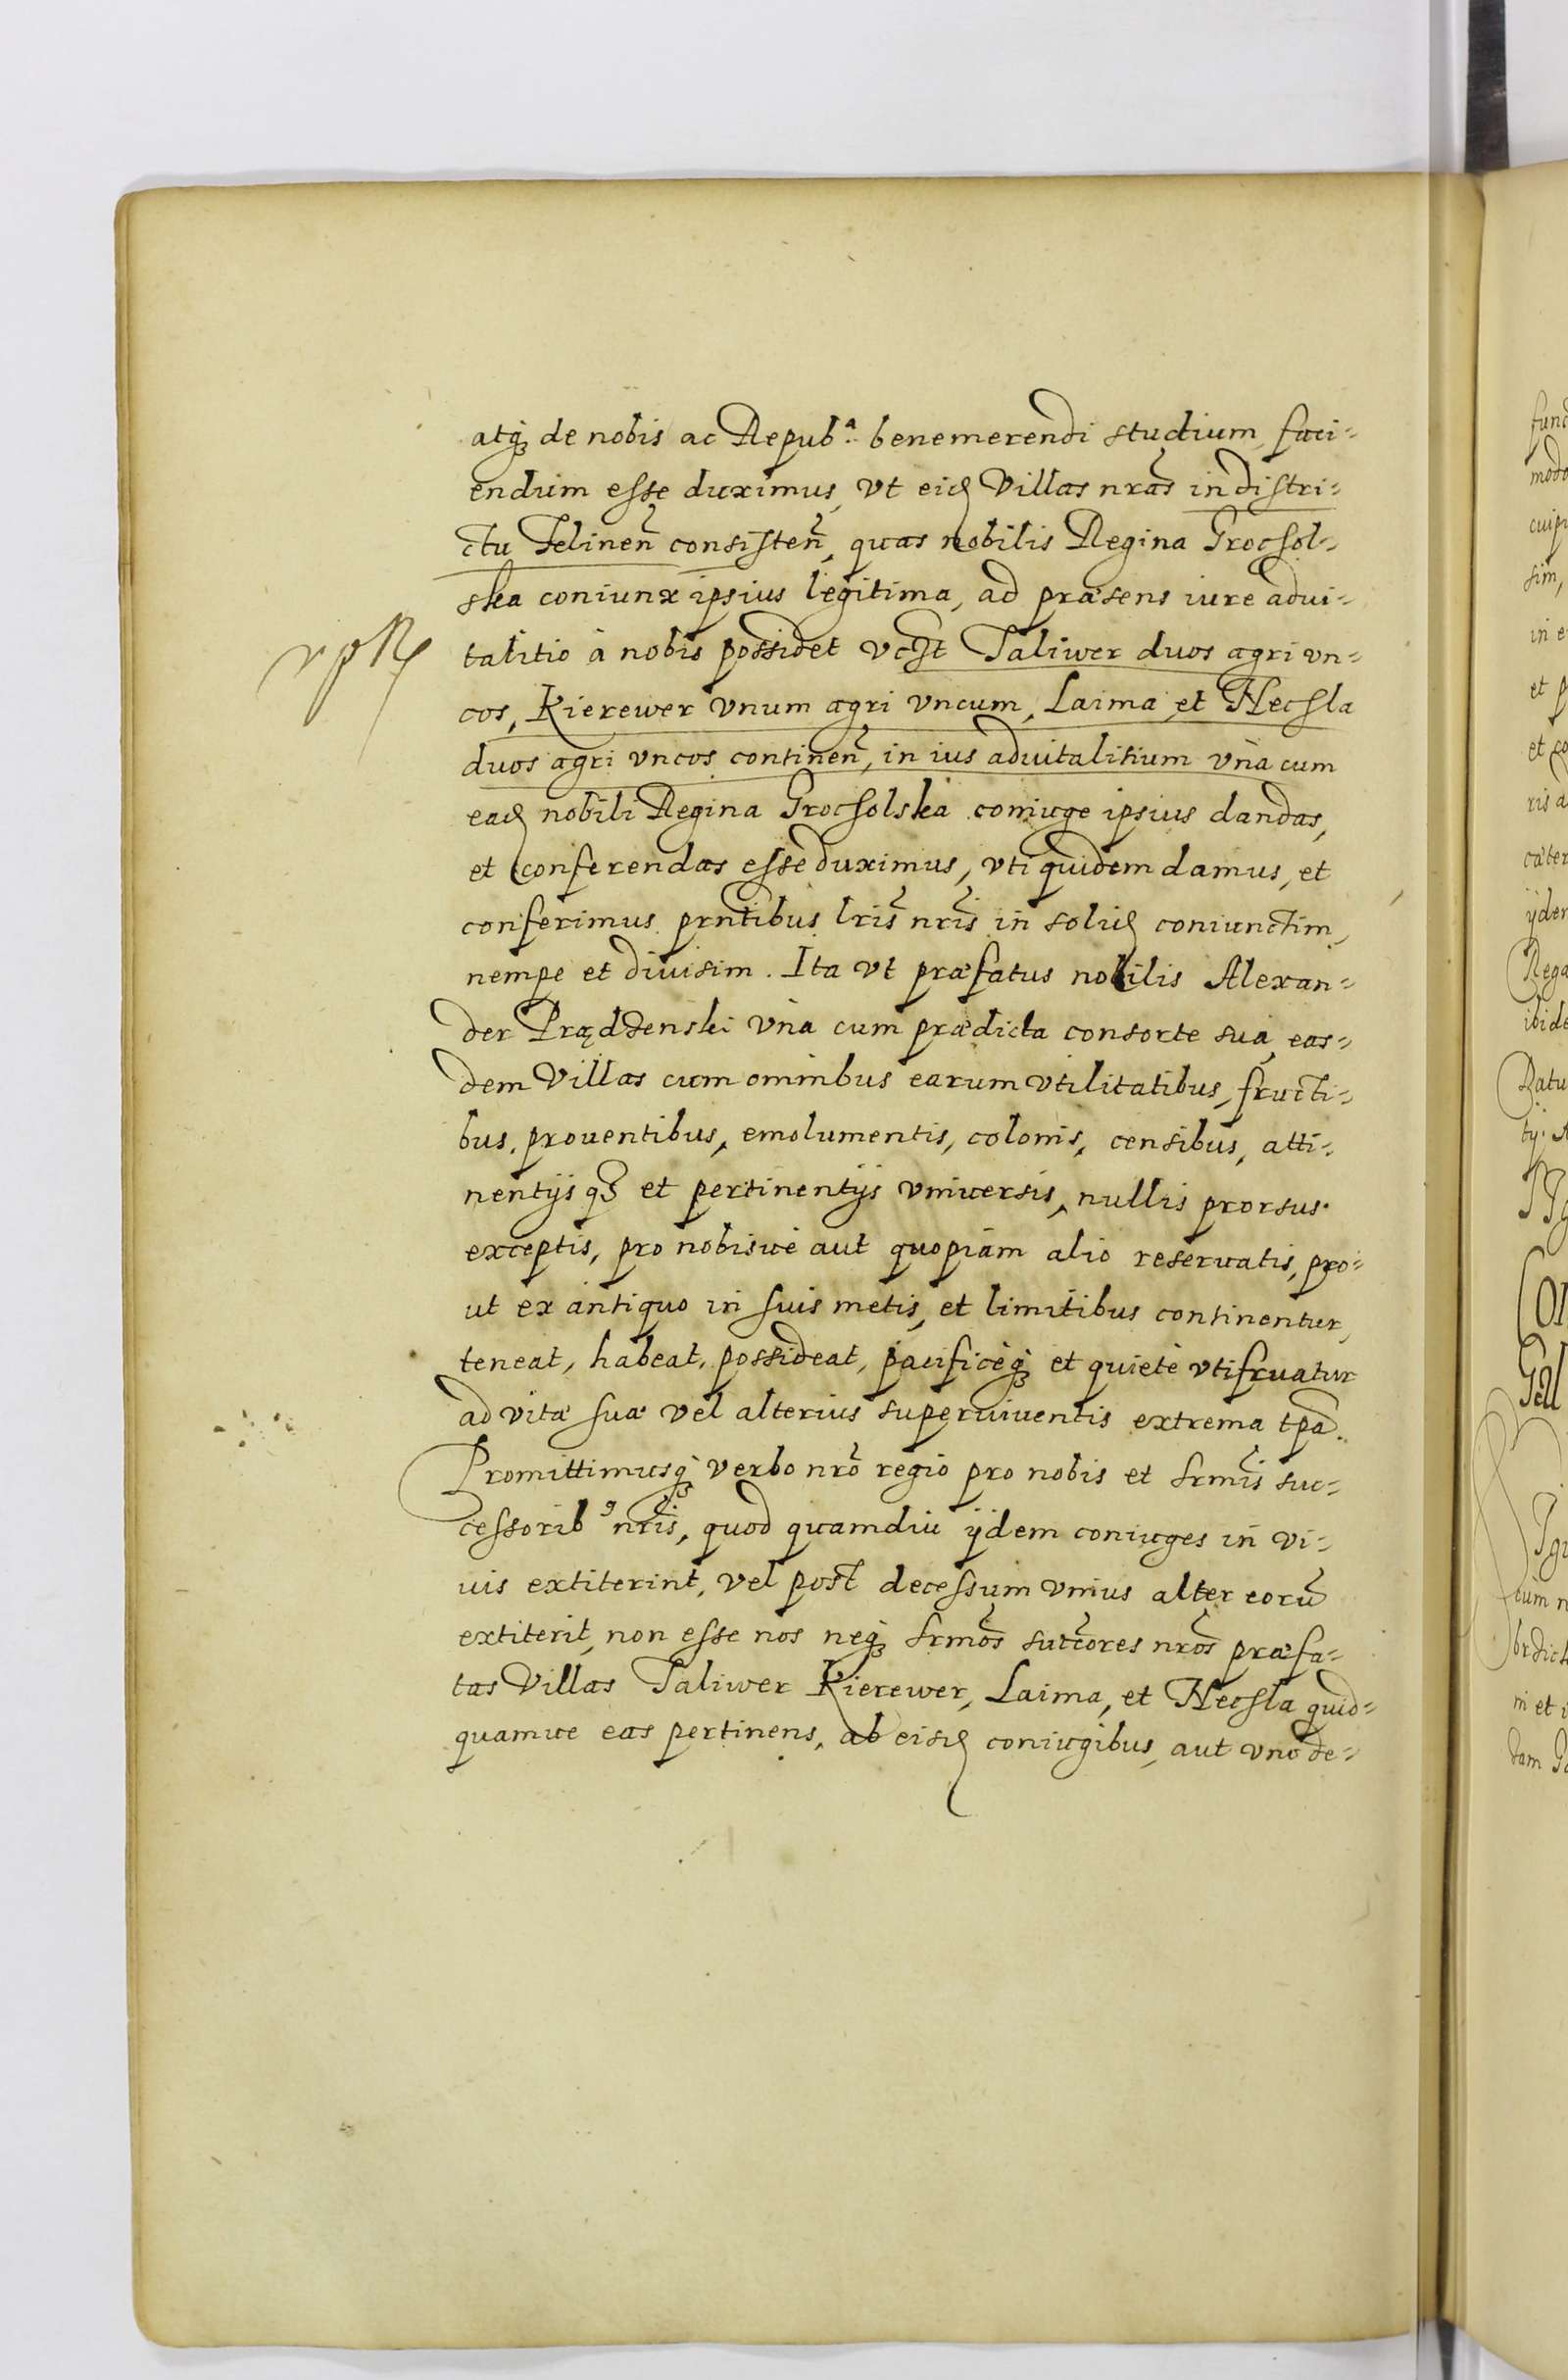 atq3 de nobis ac Repub.ᵃ benemerendi studium, faci=
endum esse duximus, vt eid Villas nras̃ in distri=
ctu Felineñ consisteñ, quas nobilis Regina Grochol=
ska coniunx ipsius legitima, ad præsens iure advi=
talitio à nobis possidet vcst Taliwer duos agri vn=
cos, Kierewer vnum agri vncum, Laima et Hecsla
duos agri vncos contineñ, in ius advitalitium vnà cum
ead nobili Regina Grocholska coniuge ipsius dandas,
et conferendas esse duximus, vti quidem damus, et
conferimus prntibus lris̃ nris̃ in solid coniunctim,
nempe et divisim. Ita vt præfatus nobilis Alexan=
der Prędzenski vnà cum prædicta consorte sua, eas=
dem Villas cum omnibus earum vtilitatibus, fructi=
bus, prouentibus, emolumentis, colonis, censibus, atti=
nentijs q3 et pertinentijs vniuersis, nullis prorsus
exceptis, pro nobisue aut quopiam alio reseruatis, pro=
ut ex antiquo in suis metis, et limitibus continentur,
teneat, habeat, possideat, pacificèq3 et quietè vtifruatur
ad vitæ suæ vel alterius superuiuentis extrema tpã.
Promittimusq3 verbo nrõ regio pro nobis et srmis̃ suc=
cessorib⁹ nris̃, quod quamdiu ijdem coniuges in vi=
uis extiterint, vel post decessum vnius alter eorũ
extiterit, non esse nos neq3 srmos̃ succores̃ nros̃ præfa=
tas Villas Taliwer Kierewer, Laima, et Hecsla quid=
quamue eas pertinens, ab eisd coniugibus, aut vno de=